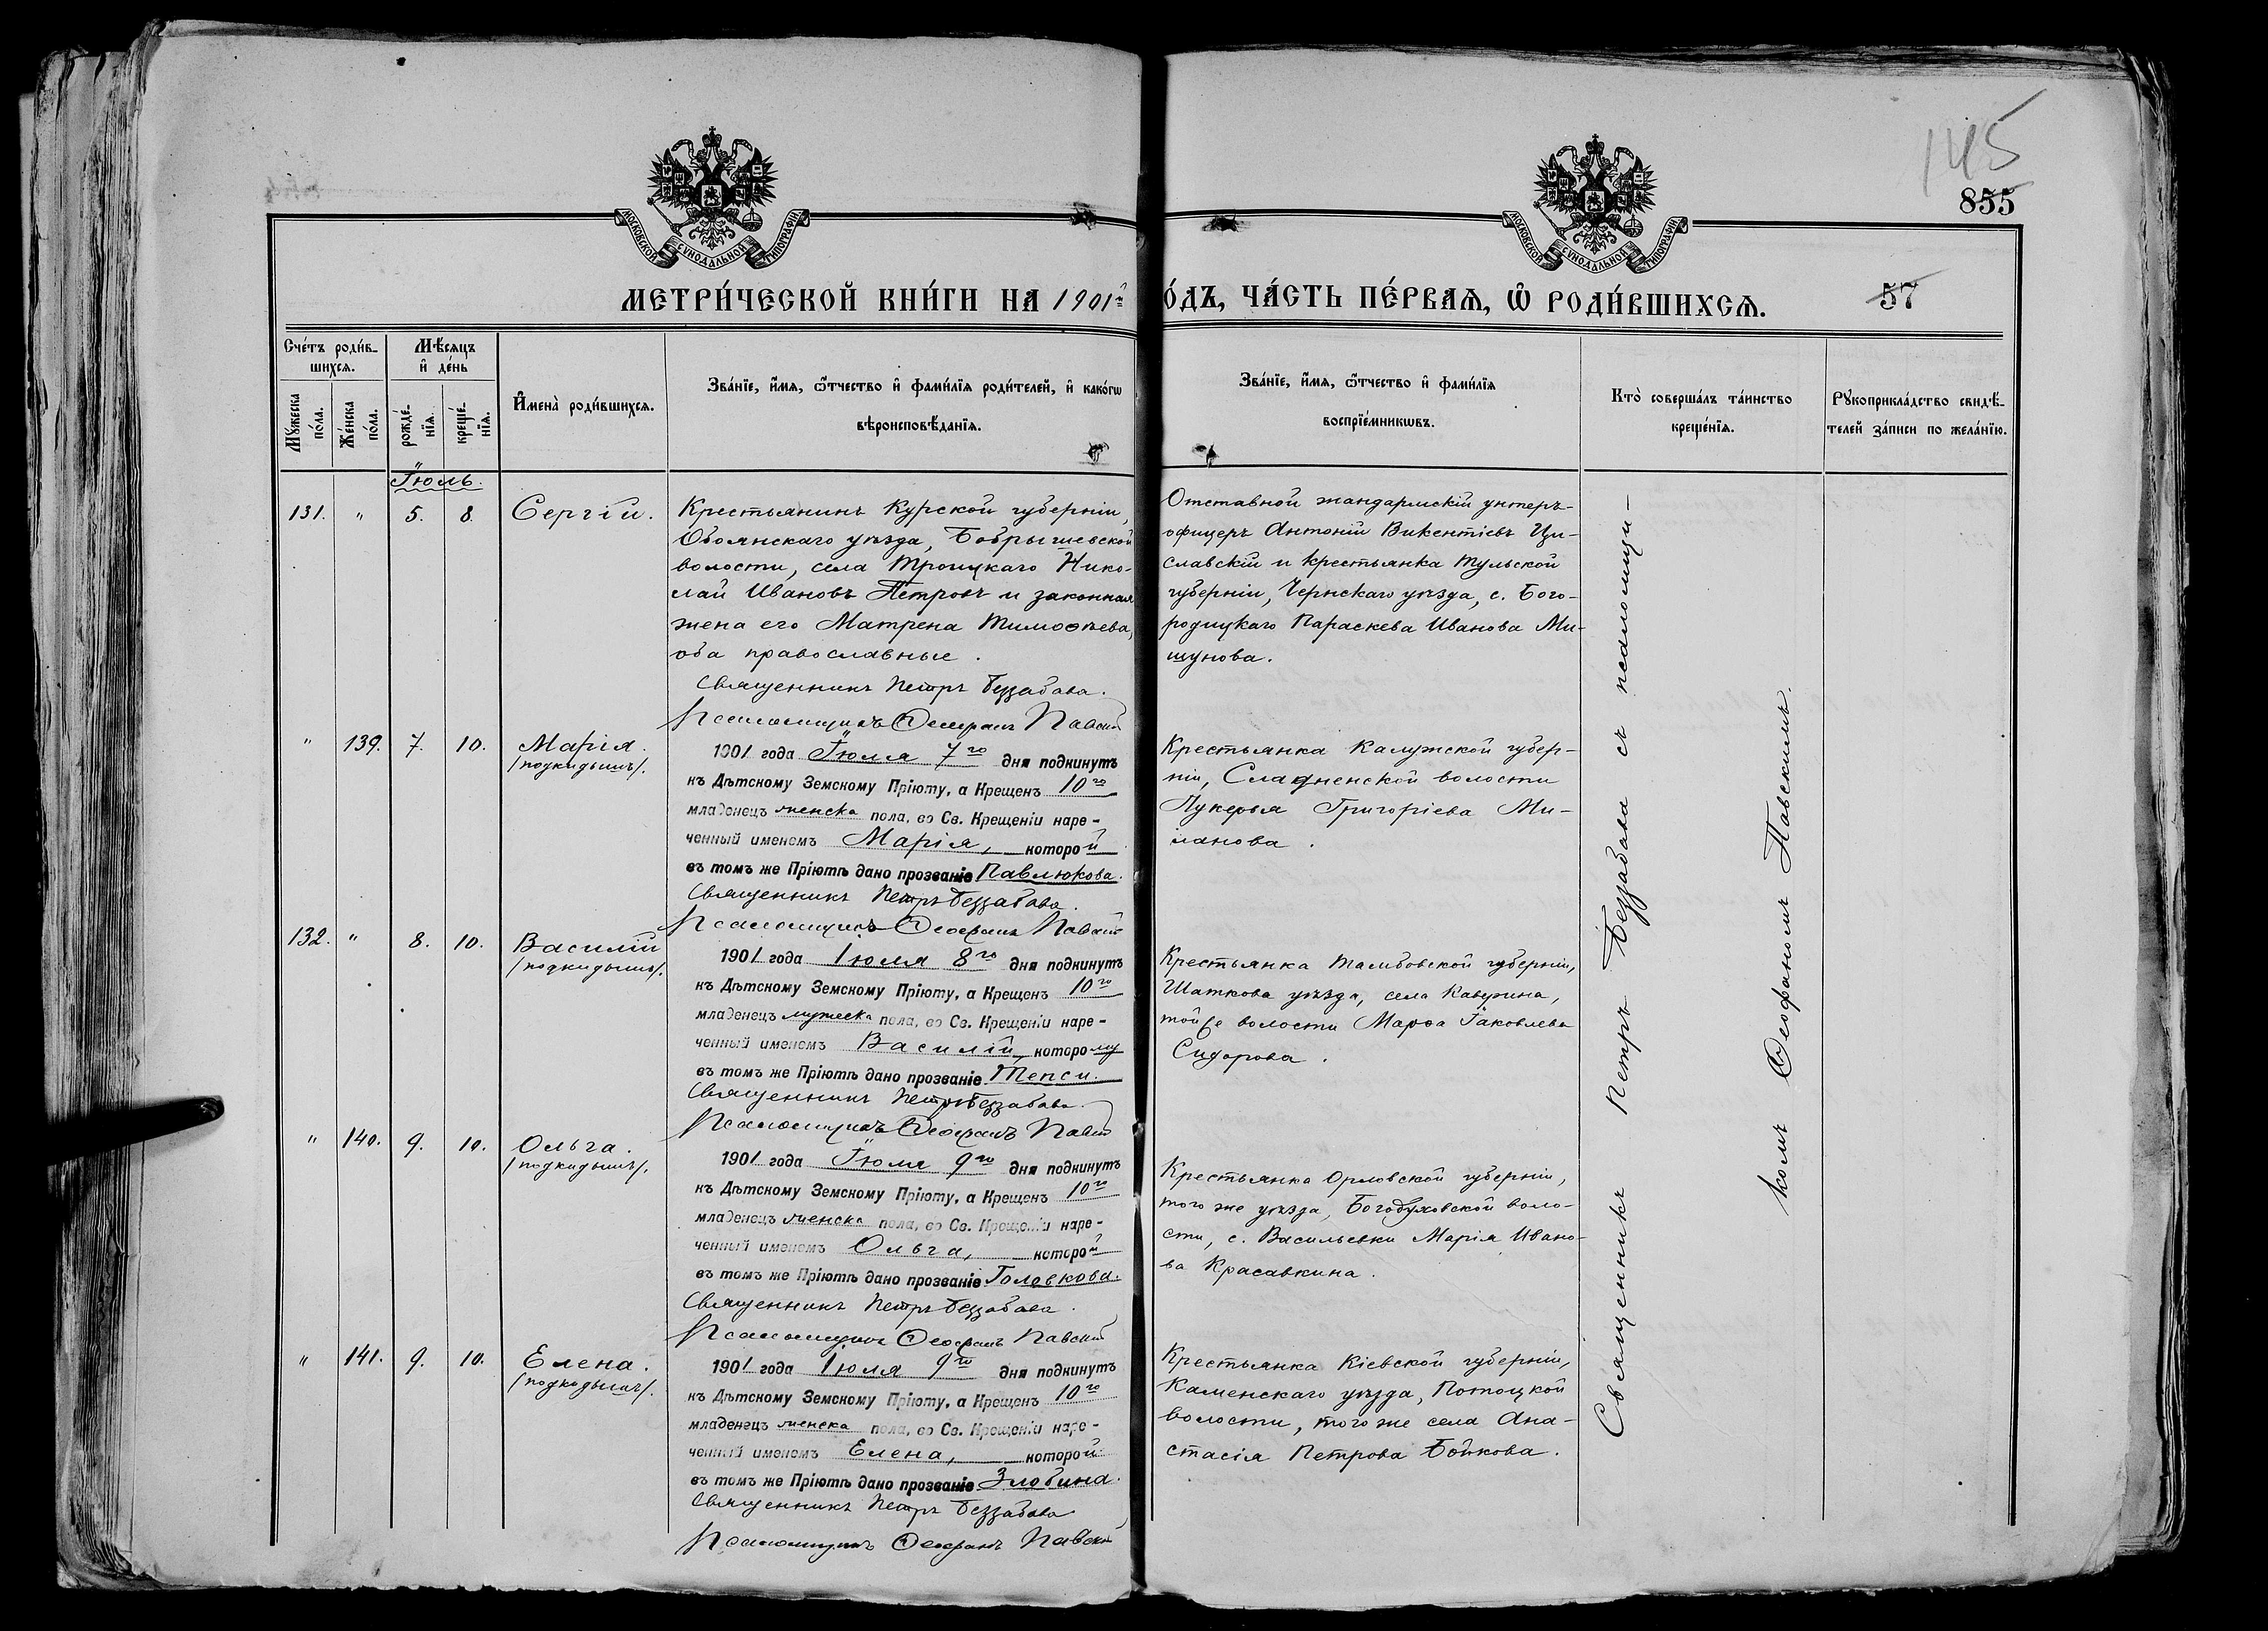 145
855
МОСКОВСКОЙ СѴНОДАЛЬНОЙ ТИПОГРАФІИ
МОСКОВСКОЙ СѴНОДАЛЬНОЙ ТИПОГРАФІИ
МЕТРИ́ЧЕСКОЙ КНИ́ГИ НА 1901 й
О́ДЪ, ЧА́СТЬ ПЕ́РВАЯ, Ѽ РОДИ́ВШИХСЯ.
57
Сче́тъ роди́в-
шихся.
Мѣ́сяцъ
и҆ де́нь
Мꙋ́жеска
по́ла.
Же́нска
по́ла.
рожде́-
нїѧ.
креще́-
нїѧ.
И҆мена̀ роди́вшихся.
Зва́нїе, и҆́мя, ѻ҆́тчество и҆ фами́лїя роди́телей, и҆ како́гѡ
вѣроисповѣ́данїя.
Зва́нїе, и҆́мя, ѻ҆́тчество и҆ фами́лїя
воспрїе́мникѡвъ.
Кто̀ соверша́лъ та́инство
креще́нїя.
Рꙋкоприкла́дство свидѣ́-
телей за́писи по жела́нїю.
Іюль.
131. " 5. 8. Сергій.
Крестьянинъ Курской губерніи,
Обоянскаго уѣзда, Бобрышевской
волости, села Троицкаго Нико-
лай Ивановъ Петровъ и законная
жена его Матрена Тимоѳеева,
оба православные.
Священникъ Петръ Беззабава.
Псаломщикъ Ѳеофанъ Павскій
Отставной жандармскій унтеръ-
офицеръ Антоній Викентіевъ Ци-
славскій и крестьянка Тульской
губерніи, Чернскаго уѣзда, с. Бого-
родицкаго Параскева Иванова Ми-
шунова.
" 139. 7. 10. Марія.
/подкидышъ/.
1901 года Іюля 7го дня подкинутъ
къ Дѣтскому Земскому Пріюту, а Крещенъ 10го
младенецъ женска пола, во Св. Крещеніи наре-
ченный именемъ Марія, которой
въ томъ же Пріютѣ дано прозваніе Павлюкова.
Священникъ Петръ Беззабава.
Псаломщикъ Ѳеофанъ Павскій
Крестьянка Калужской губер-
ніи, волости
Лукерья Григоріева Ми-
ланова.
132. " 8. 10. Василій
/подкидышъ/.
1901 года Іюля 8го дня подкинутъ
къ Дѣтскому Земскому Пріюту, а Крещенъ 10го
младенецъ мужеска пола, во Св. Крещеніи наре-
ченный именемъ Василій, которому
въ томъ же Пріютѣ дано прозваніе Тепси.
Священникъ Петръ Беззабава.
Псаломщикъ Ѳеофанъ Павскій
Крестьянка Тамбовской губерніи,
Шаткова уѣзда, села Каверина,
той же волости Марѳа Іаковлева
Сидорова.
" 140. 9. 10. Ольга.
/подкидышъ/.
1901 года Іюля 9го дня подкинутъ
къ Дѣтскому Земскому Пріюту, а Крещенъ 10го
младенецъ женска пола, во Св. Крещеніи наре-
ченный именемъ Ольга, которой
въ томъ же Пріютѣ дано прозваніе Головкова.
Священникъ Петръ Беззабава.
Псаломщикъ Ѳеофанъ Павскій
Крестьянка Орловской губерніи,
того же уѣзда, Богодуховской воло-
сти, с. Васильевки Марія Ивано-
ва Красавкина.
" 141. 9. 10. Елена.
/подкидышъ/.
1901 года Іюля 9го дня подкинутъ
къ Дѣтскому Земскому Пріюту, а Крещенъ 10го
младенецъ женска пола, во Св. Крещеніи наре-
ченный именемъ Елена, которой
въ томъ же Пріютѣ дано прозваніе Злобина.
Священникъ Петръ Беззабава
Псаломщикъ Ѳеофанъ Павскій
Крестьянка Кіевской губерніи,
Каменскаго уѣзда, Потоцкой
волости, того же села Ана-
стасія Петрова Бойкова.
Священникъ Петръ Беззабава съ псаломщи-
комъ Ѳеофаномъ Павскимъ.